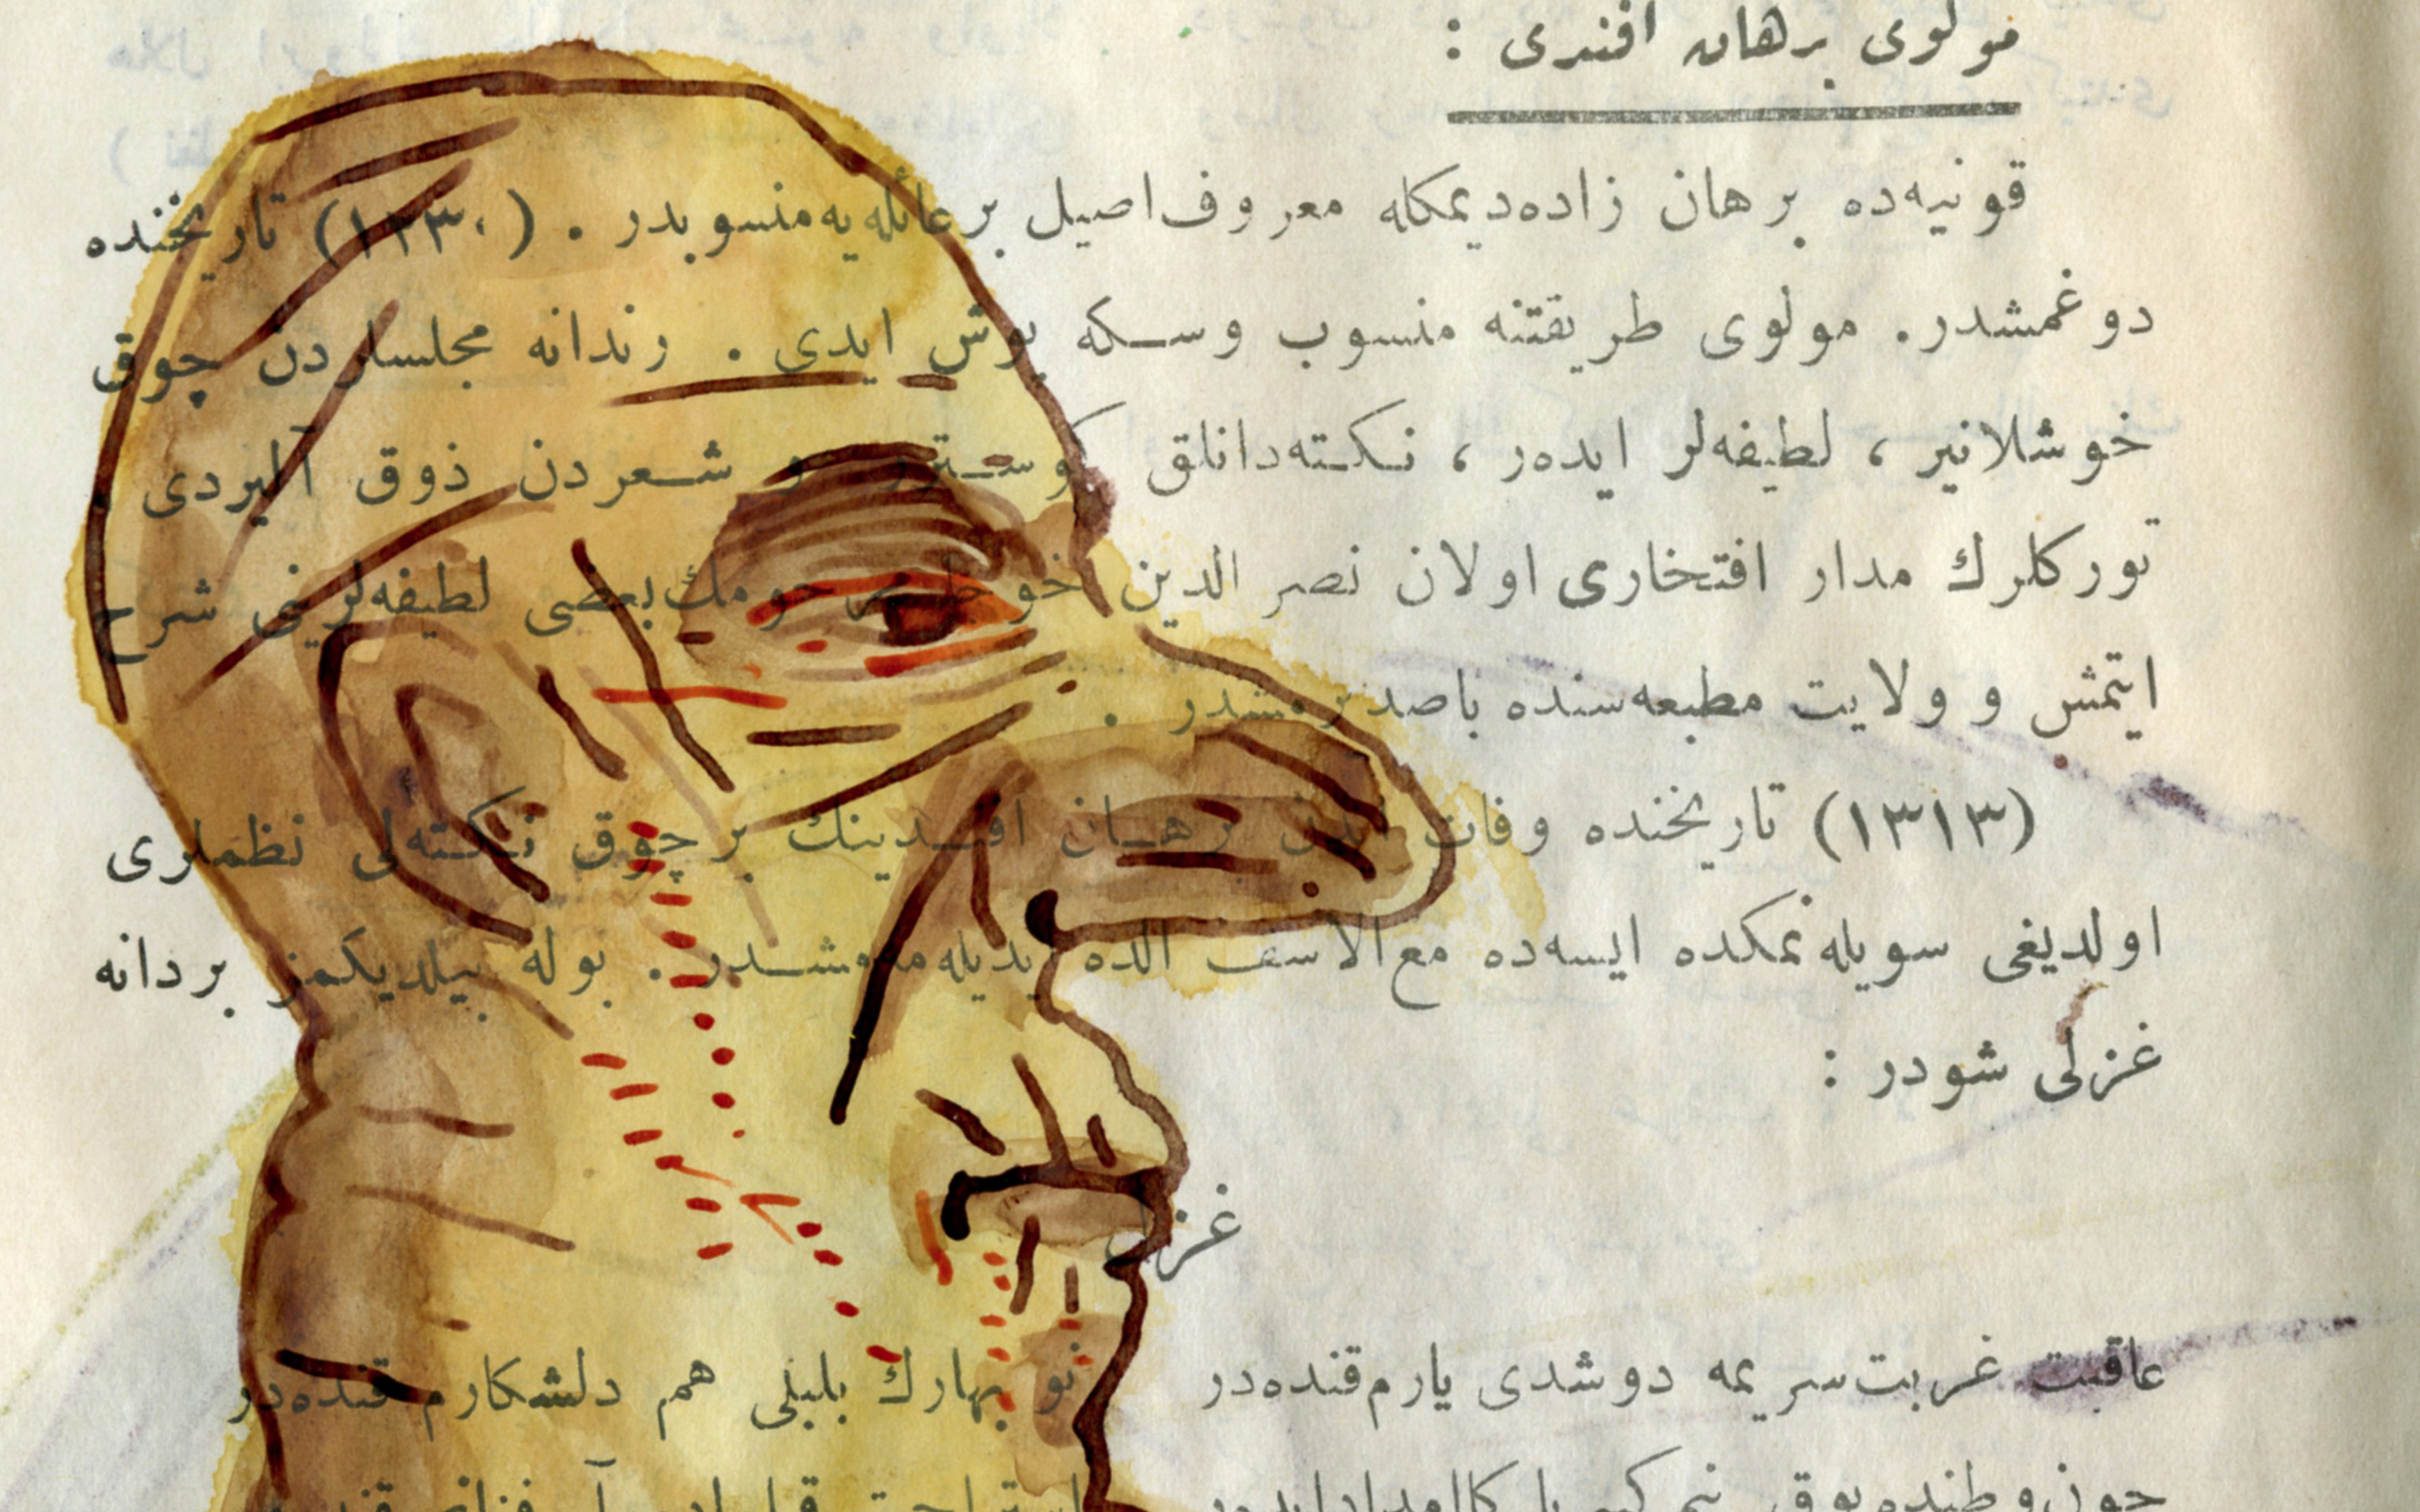 مولوی برهان افندی :
قونیه‌ده برهان زاده‌دیمکله معروف اصیل برعائله‌یه‌منسوبدر . (١٢٣٠) تاریخنده
دوغمشدر. مولوی طریقتنه منسوب وسکه پوش ایدی . رندانه مجلسلردن چوق
خوشلانیر ، لطیفه‌لر ایده‌ر ، نکته‌دانلق کوستریر و شعردن ذوق آلیردی .
تورکلرك مدار افتخاری اولان نصر الدین خوجا مرحومك بعضی لطیفه‌لرینی شرح
ایتمش و ولایت مطبعه‌سنده باصدیرمشدر .
(١٣١٣) تاریخنده وفات ایدن برهان افندینك برچوق نکته‌لی نظملری
اولدیغی سویله‌نمکده ایسه‌ده مع‌الاسف الده ایدیله‌مه‌مشدر . بوله بیلدیکمز بردانه
غزلی شودر :
غزل
عاقبت غربت‌سریمه دوشدی یارم‌قنده‌در نو بهارك بلبلی هم دلشکارم قنده‌در
چون‌وطنده‌یوق